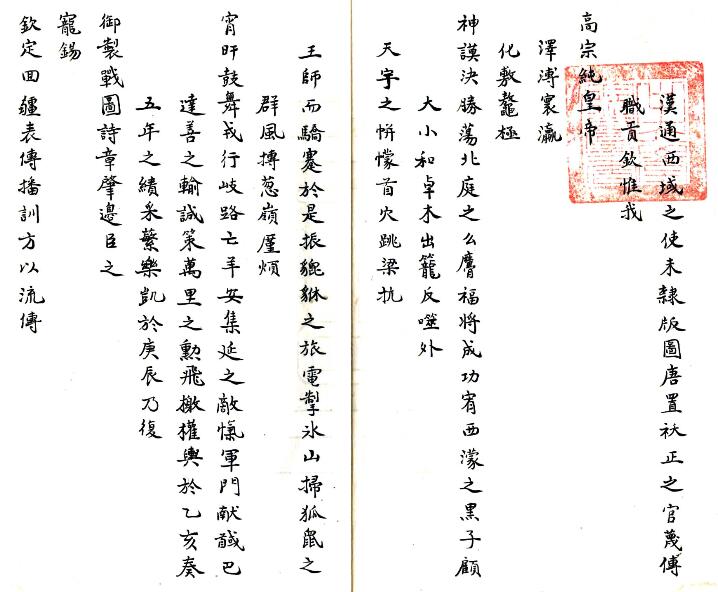 漢通西域之使未隸版圖唐置祆正之官蔑傳
職貢欽惟我
高宗純皇帝
澤溥寰瀛
化敷鼇極
神謨決勝蕩北庭之么麿福將成功宥西濛之黒子顧
大小和卓木出籠反噬外
天宇之帡懞首穴跳梁抗
王師而驕蹇於是振貔貅之旅電掣氷山掃狐鼠之
群風摶葱嶺厪煩
宵旰鼓舞戎行歧路亡羊安集延之敵愾軍門献馘巴
達善之輸誠策萬里之勳飛檄權輿於乙亥奏
五年之績釆蘩樂凱於庚辰乃復
御製戰圖詩章肇邊臣之
寵錫
欽定回疆表傳播訓方以流傳